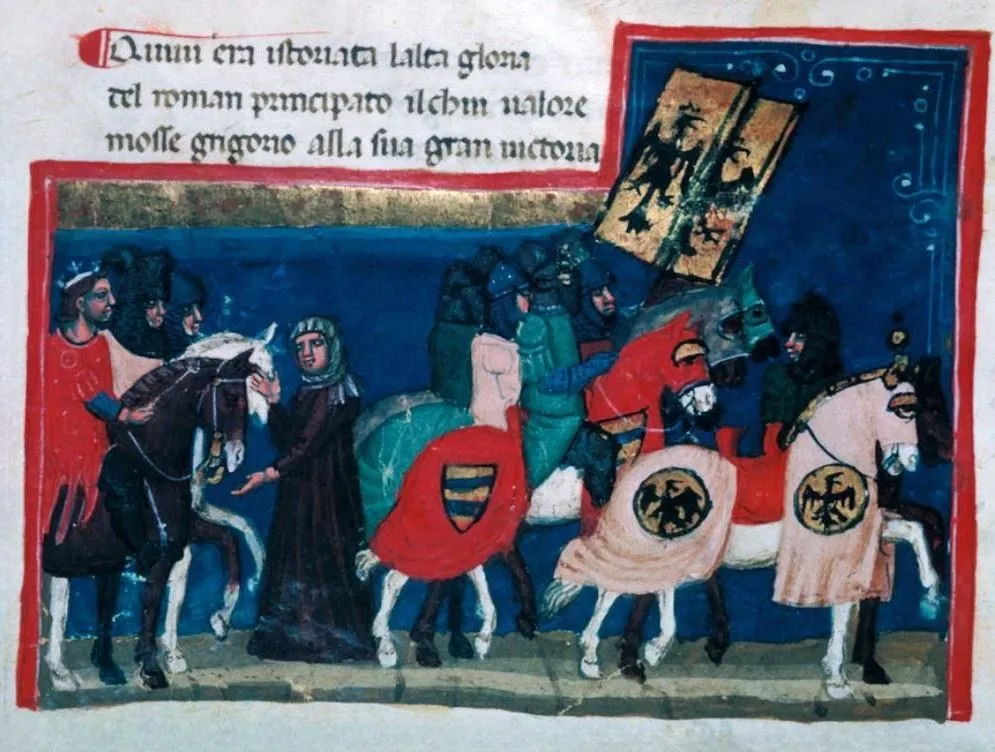 Quiui era istoriata lalta gloria
del roman principato ilchui ualore
mosse grigorio alla sua gran uictoria